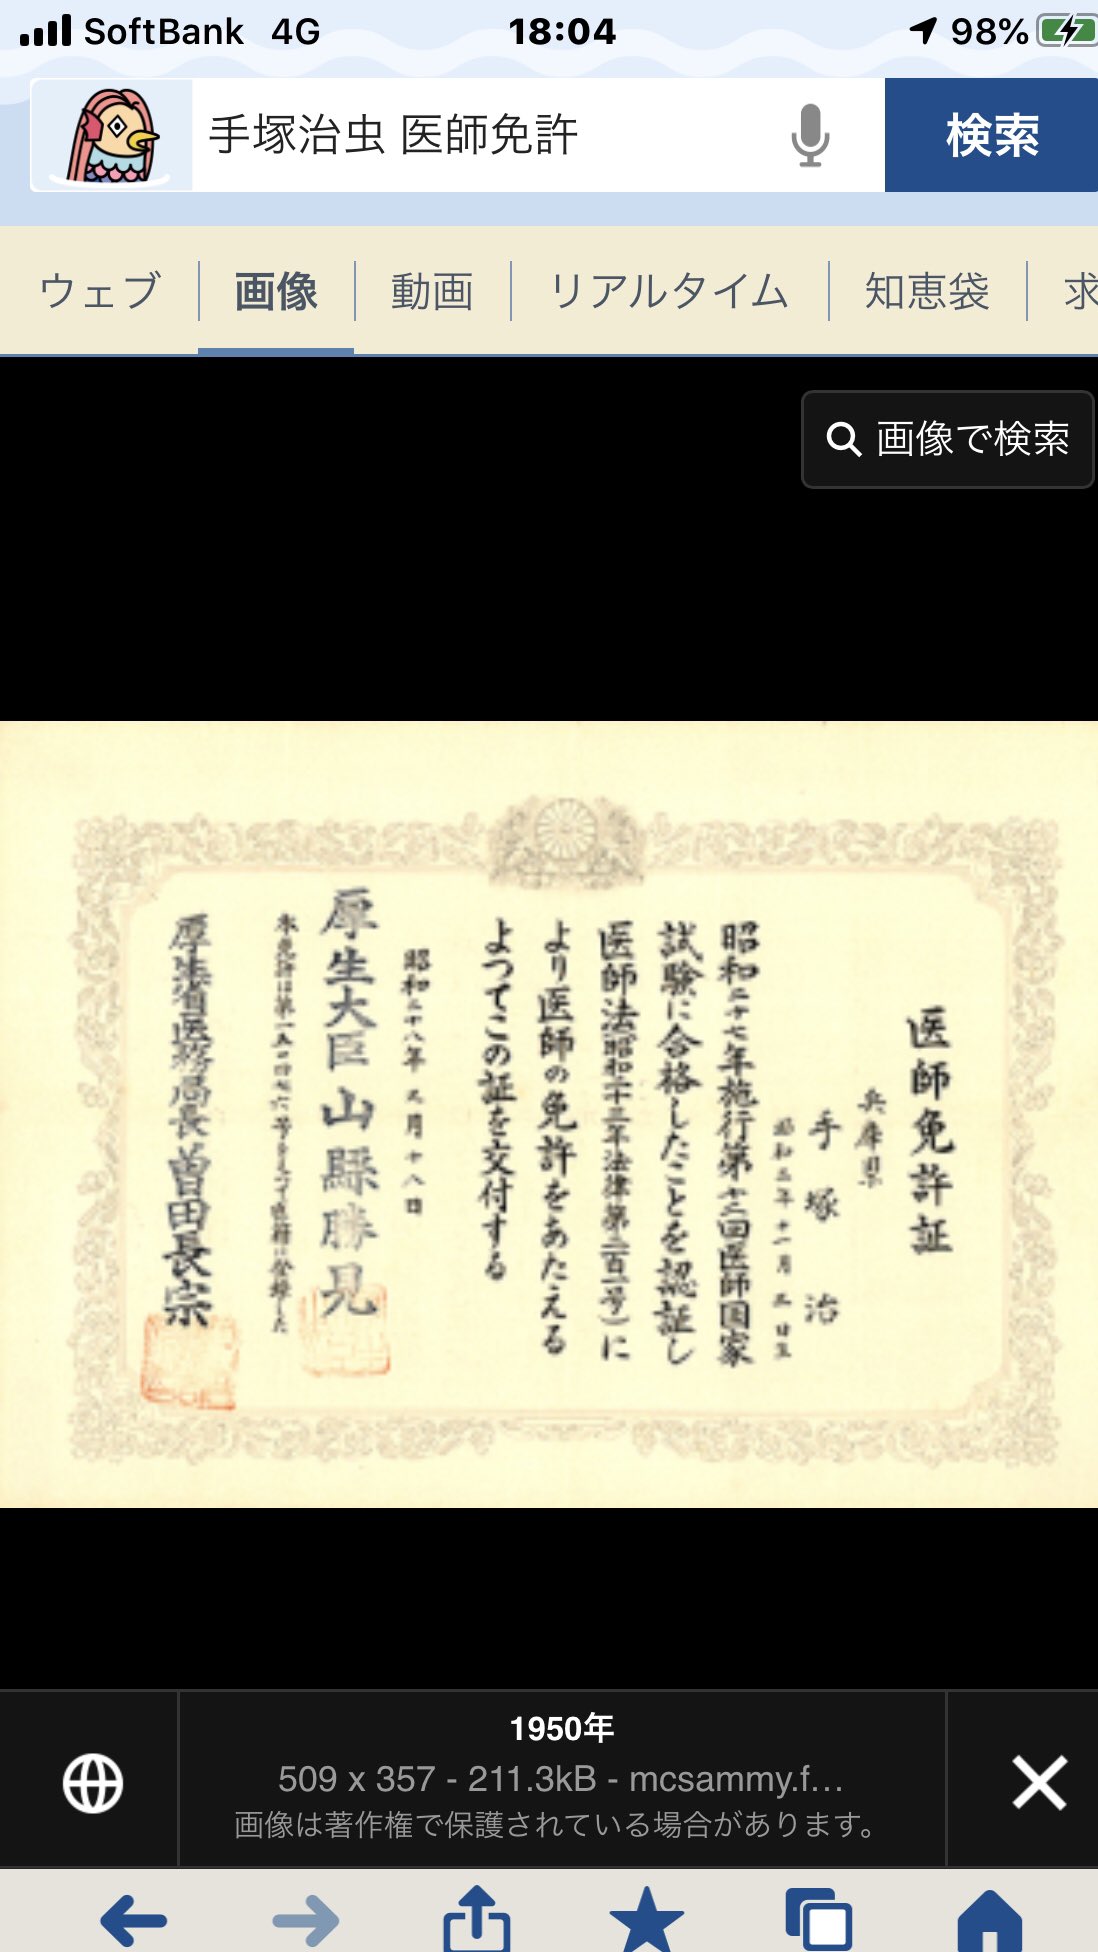 SoftBank 4G 18:04 98%
手塚治虫 医師免許 検索
ウェブ 画像 動画 リアルタイム 知恵袋 求
画像で検索
医師免許証
兵庫県
手塚治
昭和三年十一月三日生
昭和二十七年施行第十三回医師国家
試験に合格したことを認証し
医師法(昭和二十三年法律第二百一号)に
より医師の免許をあたえる
よつてこの証を交付する
昭和二十八年 月十八日
厚生大臣 山縣勝見
厚生省医務局長 曽田長宗
1950年
509 x 357 - 211.3kB - mcsammy.f…
画像は著作権で保護されている場合があります。